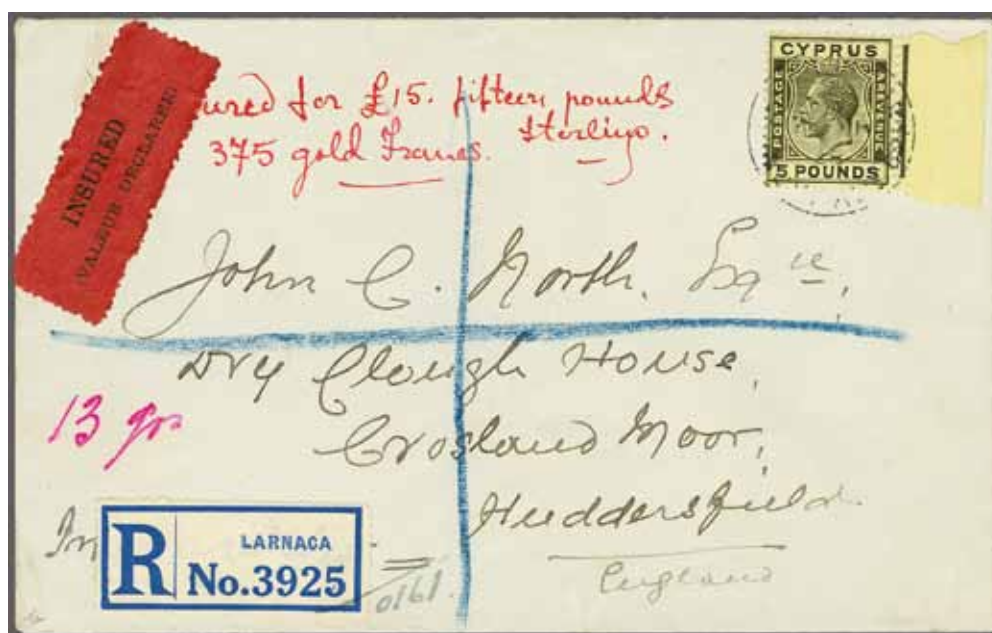 INSURED
(VALEUR DECLAREE)
ured for £15. fifteen pounds
Sterling.
375 gold Francs.
CYPRUS
POSTAGE
REVENUE
5 POUNDS
John C. North, Esqre,
Dry Clough House,
Crosland Moor,
Huddersfield.
England
13 grs
In
R
LARNACA
No.3925
0161